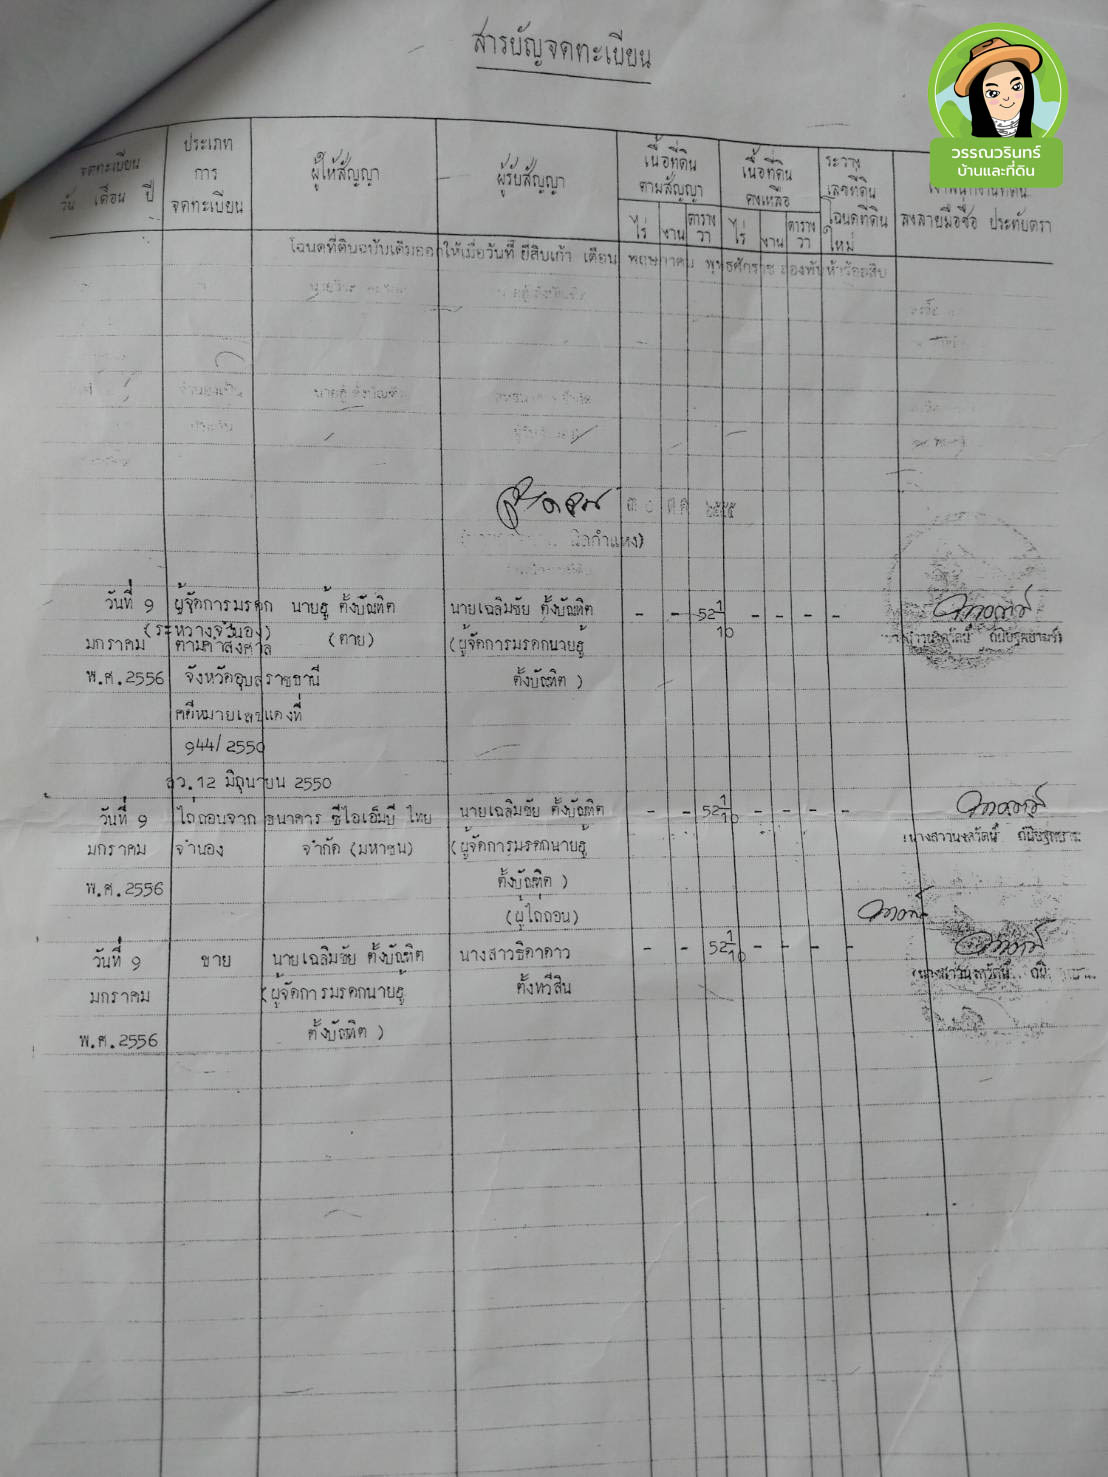 สารบัญจดทะเบียน
วรรณวรินทร์
บ้านและที่ดิน
จดทะเบียน
วัน เดือน ปี
ประเภท
การ
จดทะเบียน
ผู้ให้สัญญา
ผู้รับสัญญา
เนื้อที่ดิน
ตามสัญญา
ไร่ งาน ตาราง
วา
เนื้อที่ดิน
คงเหลือ
ไร่ งาน ตาราง
วา
ระวาง
เลขที่ดิน
โฉนดที่ดิน
ใหม่
เจ้าพนักงานที่ดิน
ลงลายมือชื่อ ประทับตรา
โฉนดที่ดินฉบับเดิมออกให้เมื่อวันที่ ยี่สิบเก้า เดือน พฤษภาคม พุทธศักราช สองพันห้าร้อยสิบ
นายฮู้ ตั้งบัณฑิต
วันที่ 9 ผู้จัดการมรดก นายฮู้ ตั้งบัณฑิต นายเฉลิมชัย ตั้งบัณฑิต - - 52 1/10 - - - -
(ระหว่างจำนอง)
มกราคม ตามคำสั่งศาล (ตาย) (ผู้จัดการมรดกนายฮู้
พ.ศ.2556 จังหวัดอุบลราชธานี ตั้งบัณฑิต )
คดีหมายเลขแดงที่
944/2550
ลว.12 มิถุนายน 2550
วันที่ 9 ไถ่ถอนจาก ธนาคาร ซีไอเอ็มบี ไทย นายเฉลิมชัย ตั้งบัณฑิต - - 52 1/10 - - - -
มกราคม จำนอง จำกัด (มหาชน) (ผู้จัดการมรดกนายฮู้
พ.ศ.2556 ตั้งบัณฑิต )
(ผู้ไถ่ถอน)
วันที่ 9 ขาย นายเฉลิมชัย ตั้งบัณฑิต นางสาวธิดาดาว - - 52 1/10 - - - -
มกราคม (ผู้จัดการมรดกนายฮู้ ตั้งทวีสิน
พ.ศ.2556 ตั้งบัณฑิต )